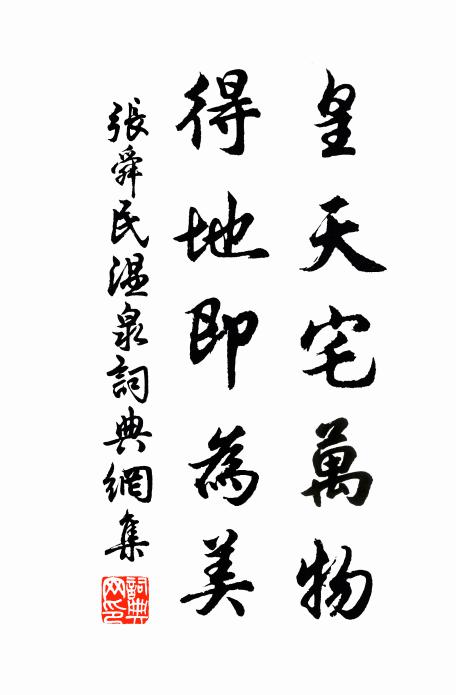 皇天宅萬物
得地即為美
張舜民温泉詞典網集
詞典
网印